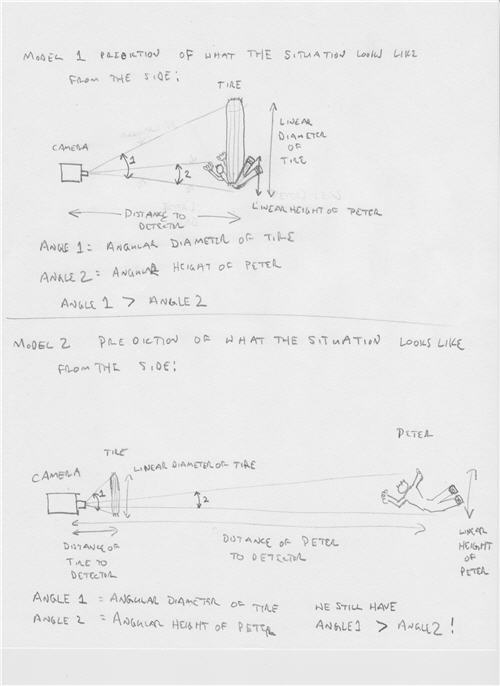 MODEL 1 PREDICTION OF WHAT THE SITUATION LOOKS LIKE
FROM THE SIDE:
TIRE
CAMERA
1
2
LINEAR
DIAMETER
OF
TIRE
LINEAR HEIGHT OF PETER
DISTANCE TO
DETECTOR
ANGLE 1 = ANGULAR DIAMETER OF TIRE
ANGLE 2 = ANGULAR HEIGHT OF PETER
ANGLE 1 > ANGLE 2
MODEL 2 PREDICTION OF WHAT THE SITUATION LOOKS LIKE
FROM THE SIDE:
PETER
TIRE
CAMERA
LINEAR DIAMETER OF TIRE
1
2
DISTANCE OF
TIRE TO
DETECTOR
DISTANCE OF PETER
TO DETECTOR
LINEAR
HEIGHT
OF
PETER
ANGLE 1 = ANGULAR DIAMETER OF TIRE
ANGLE 2 = ANGULAR HEIGHT OF PETER
WE STILL HAVE
ANGLE 1 > ANGLE 2!